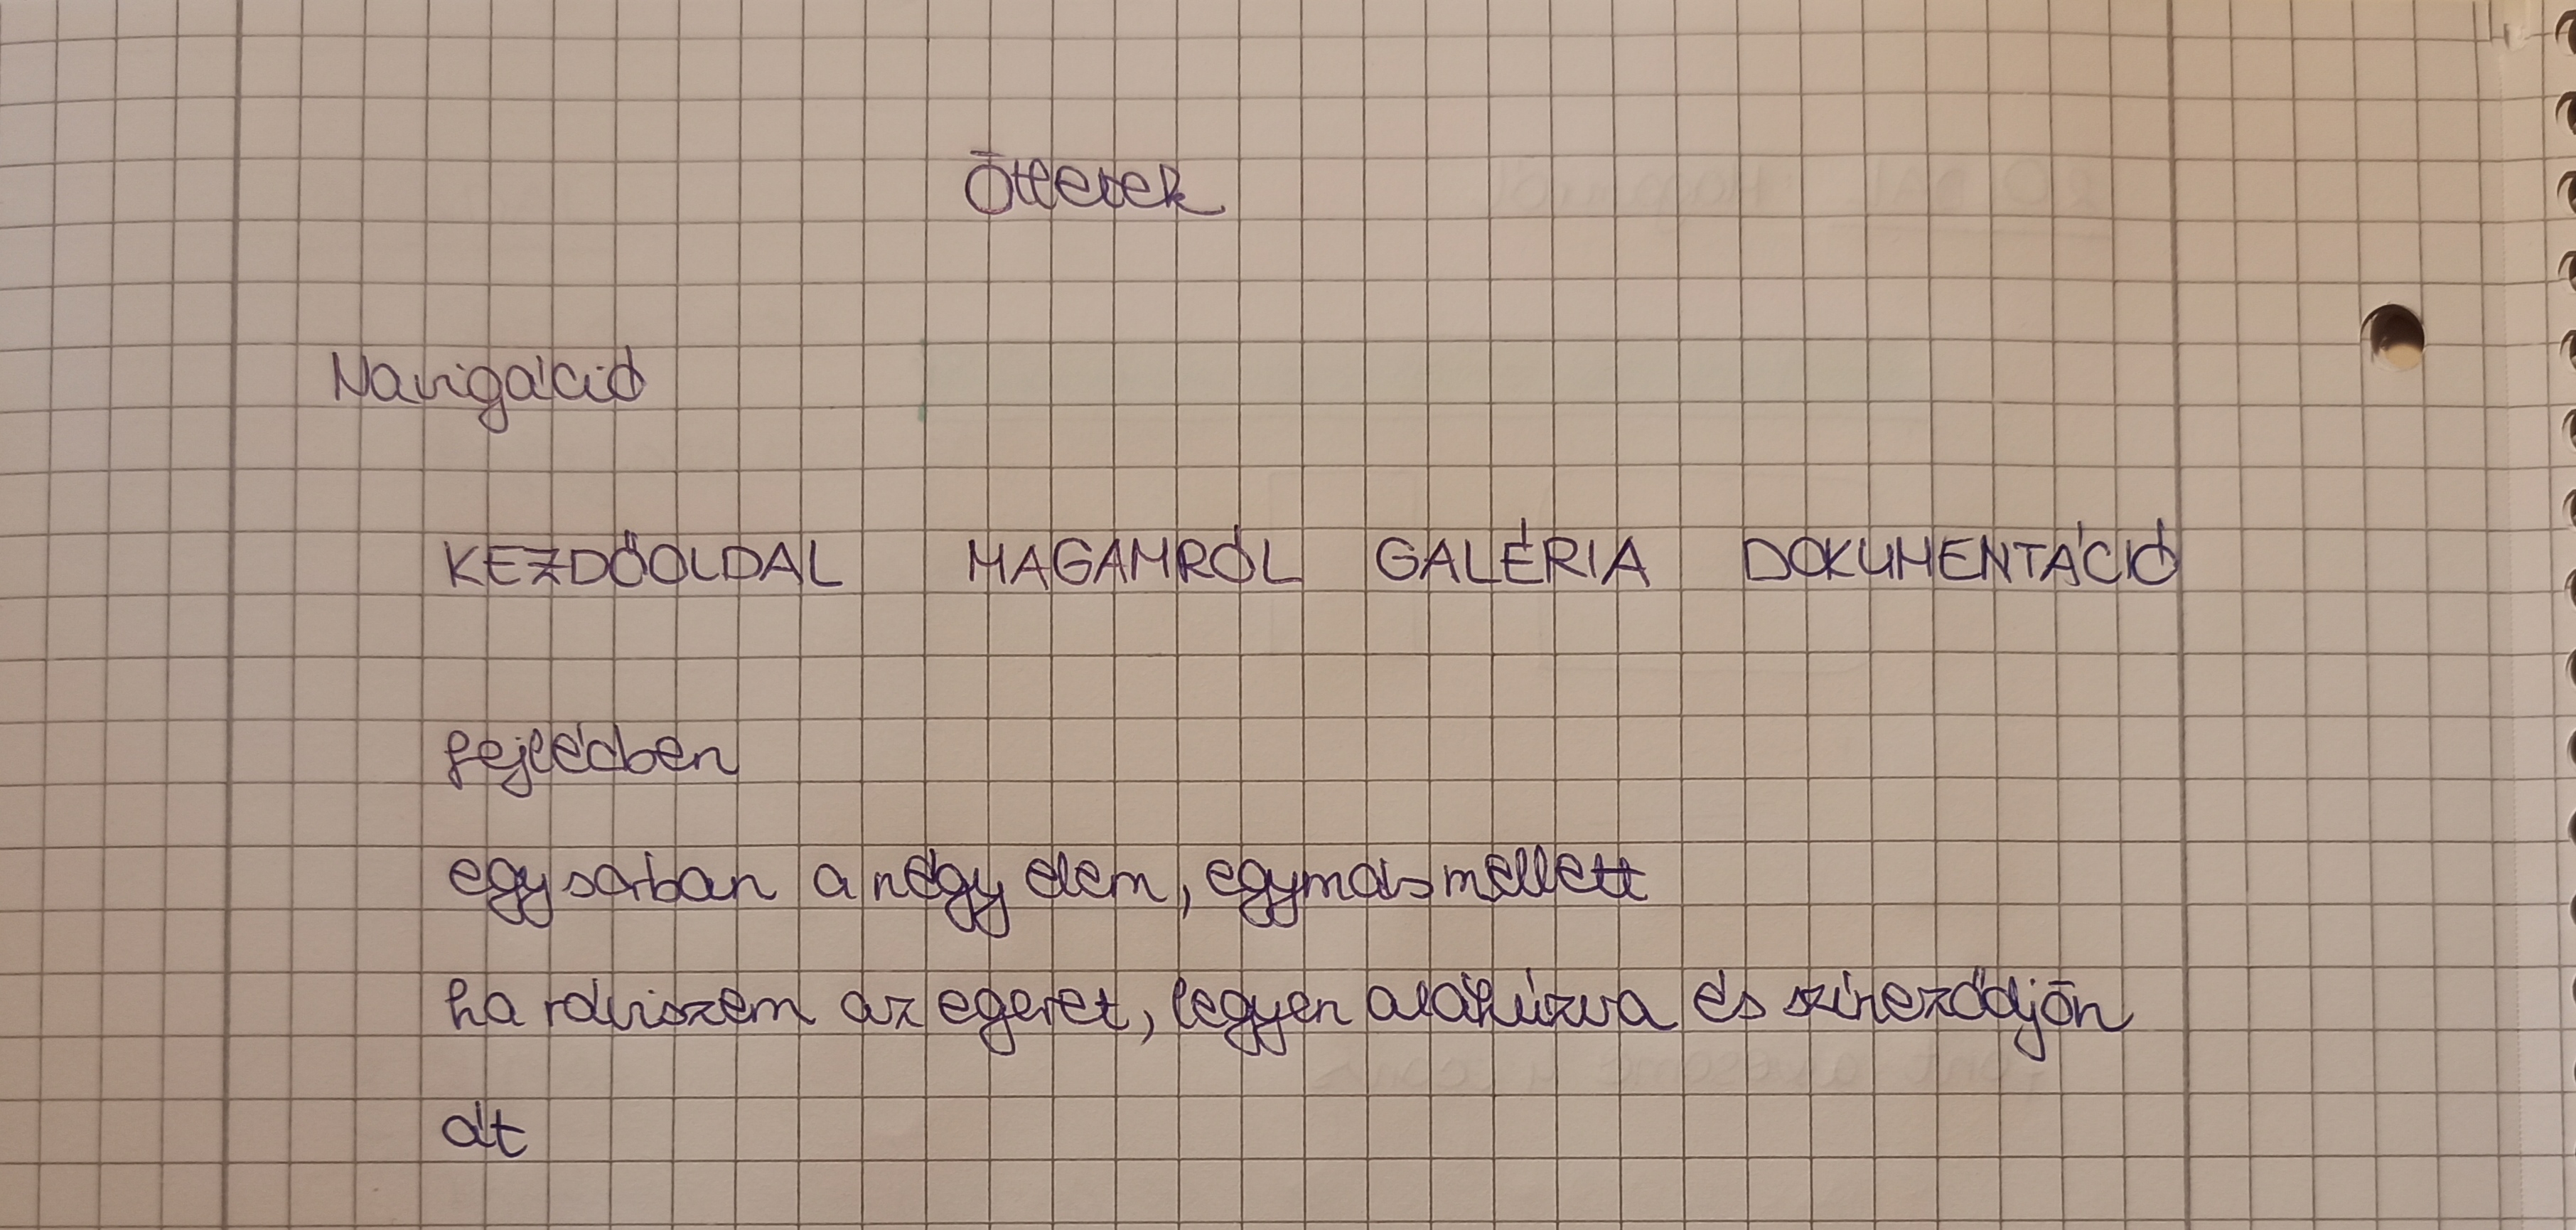 Ötletek
Navigáció
KEZDŐOLDAL MAGAMRÓL GALÉRIA DOKUMENTÁCIÓ
fejlécben
egy sorban a négy elem, egymás mellett
ha ráviszem az egeret, legyen aláhúzva és színeződjön
át